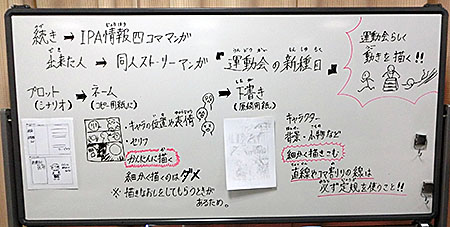 続き → IPA情報四コママンガ
出来た人 → 同人ストーリーマンガ『運動会の新種目』
運動会らしく
動きを描く!!
プロット → ネーム → 下書き
(シナリオ) (コピー用紙に) (原稿用紙に)
・キャラの位置や表情
・セリフ
かんたんに描く
細かく描くのはダメ
※描きなおしをしてもらうときが
あるため。
キャラクター
背景・小物など
細かく描きこむ
直線やコマ割りの線は
必ず定規を使うこと!!